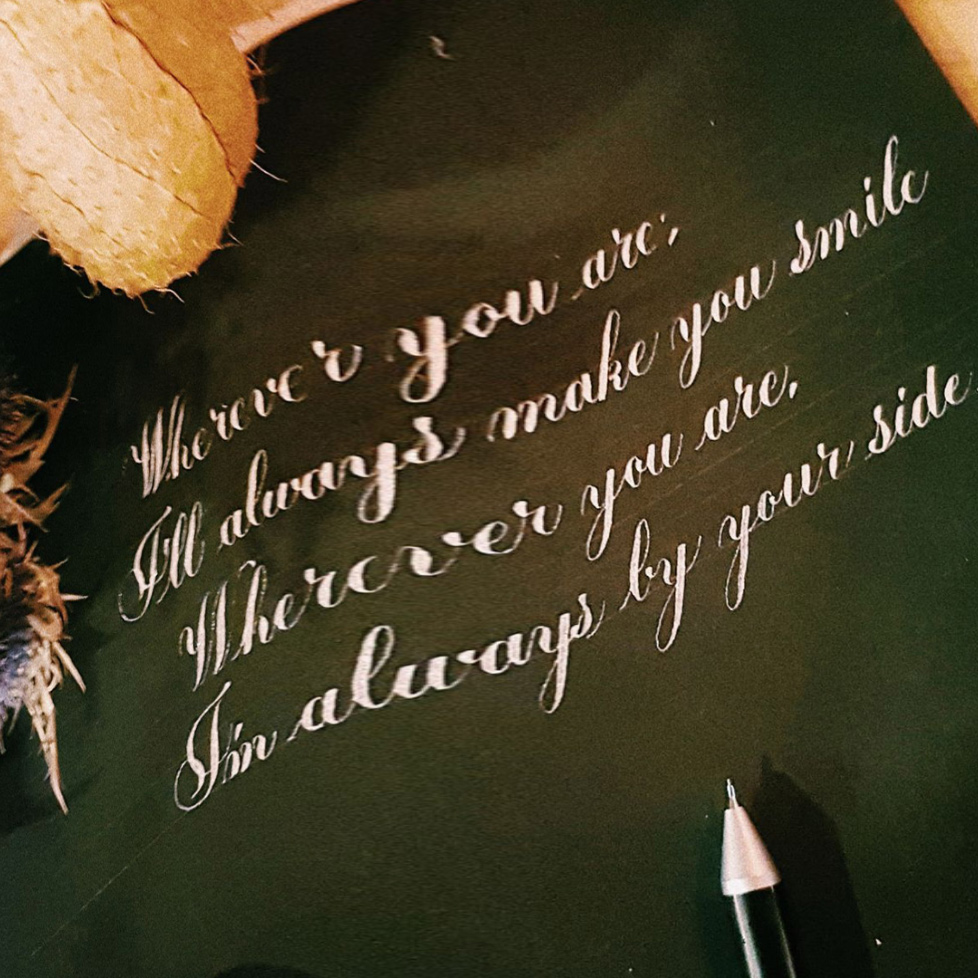 Wherever you are,
I'll always make you smile
Wherever you are,
I'm always by your side